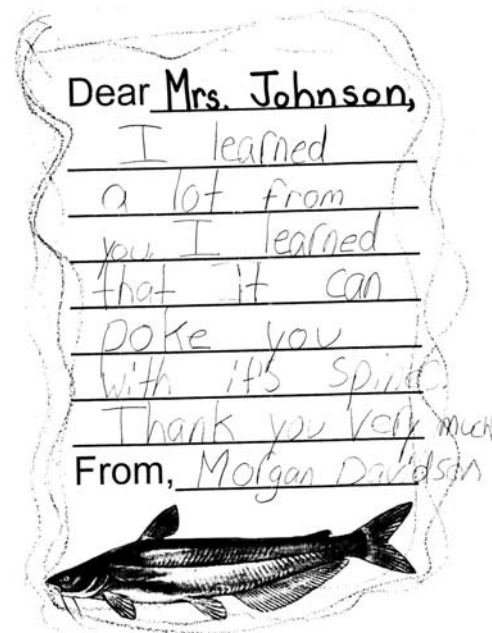 Dear Mrs. Johnson,
I learned
a lot from
you. I learned
that it can
poke you
with it's spine.
Thank you very much
From, Morgan Davidson